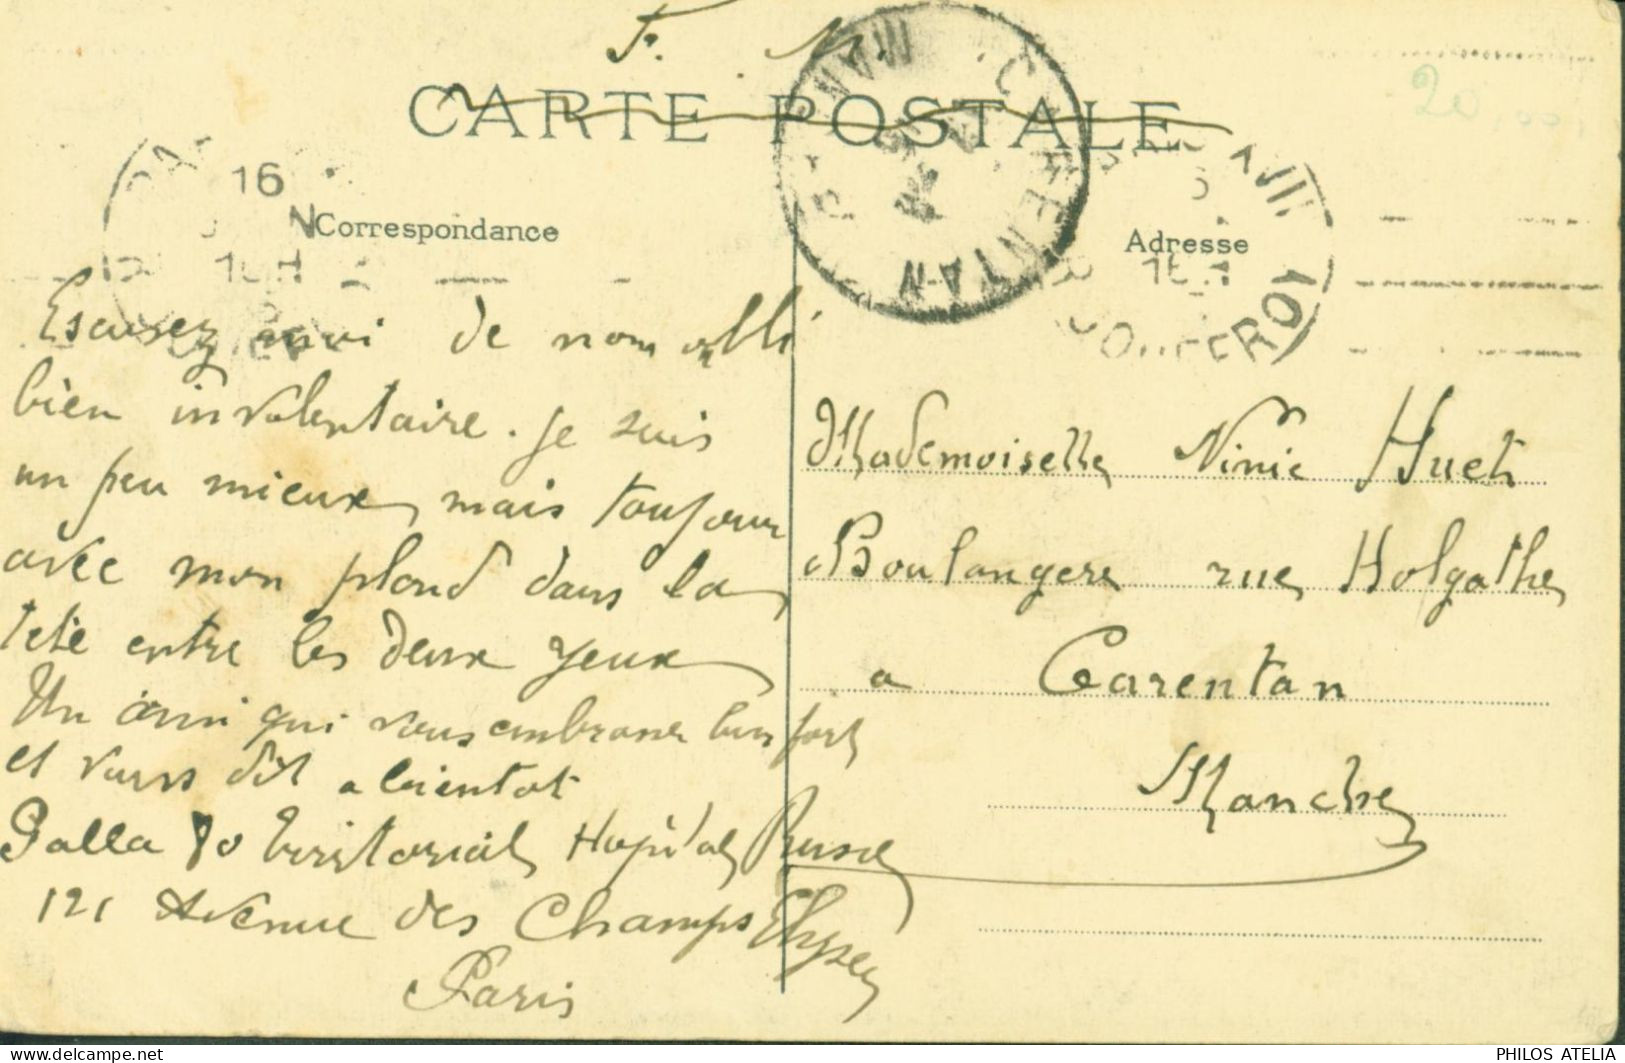 F. M.
CARTE POSTALE
20,00
16
Correspondance
Adresse
CARENTAN
Escusez moi de nom oubli
bien involentaire. je suis
un peu mieux mais toujour
avec mon plond dans la
tete entre les deux yeux
Un ami qui vous embrasse bien fort
et vous dit a bientot
Salla 80 Territorial Hopital Russe
121 Avenue des Champs Elysey
Paris
Mademoiselle Ninie Huet
Boulangere rue Holgathe
a Carentan
Manche
delcampe.net
PHILOS ATELIA